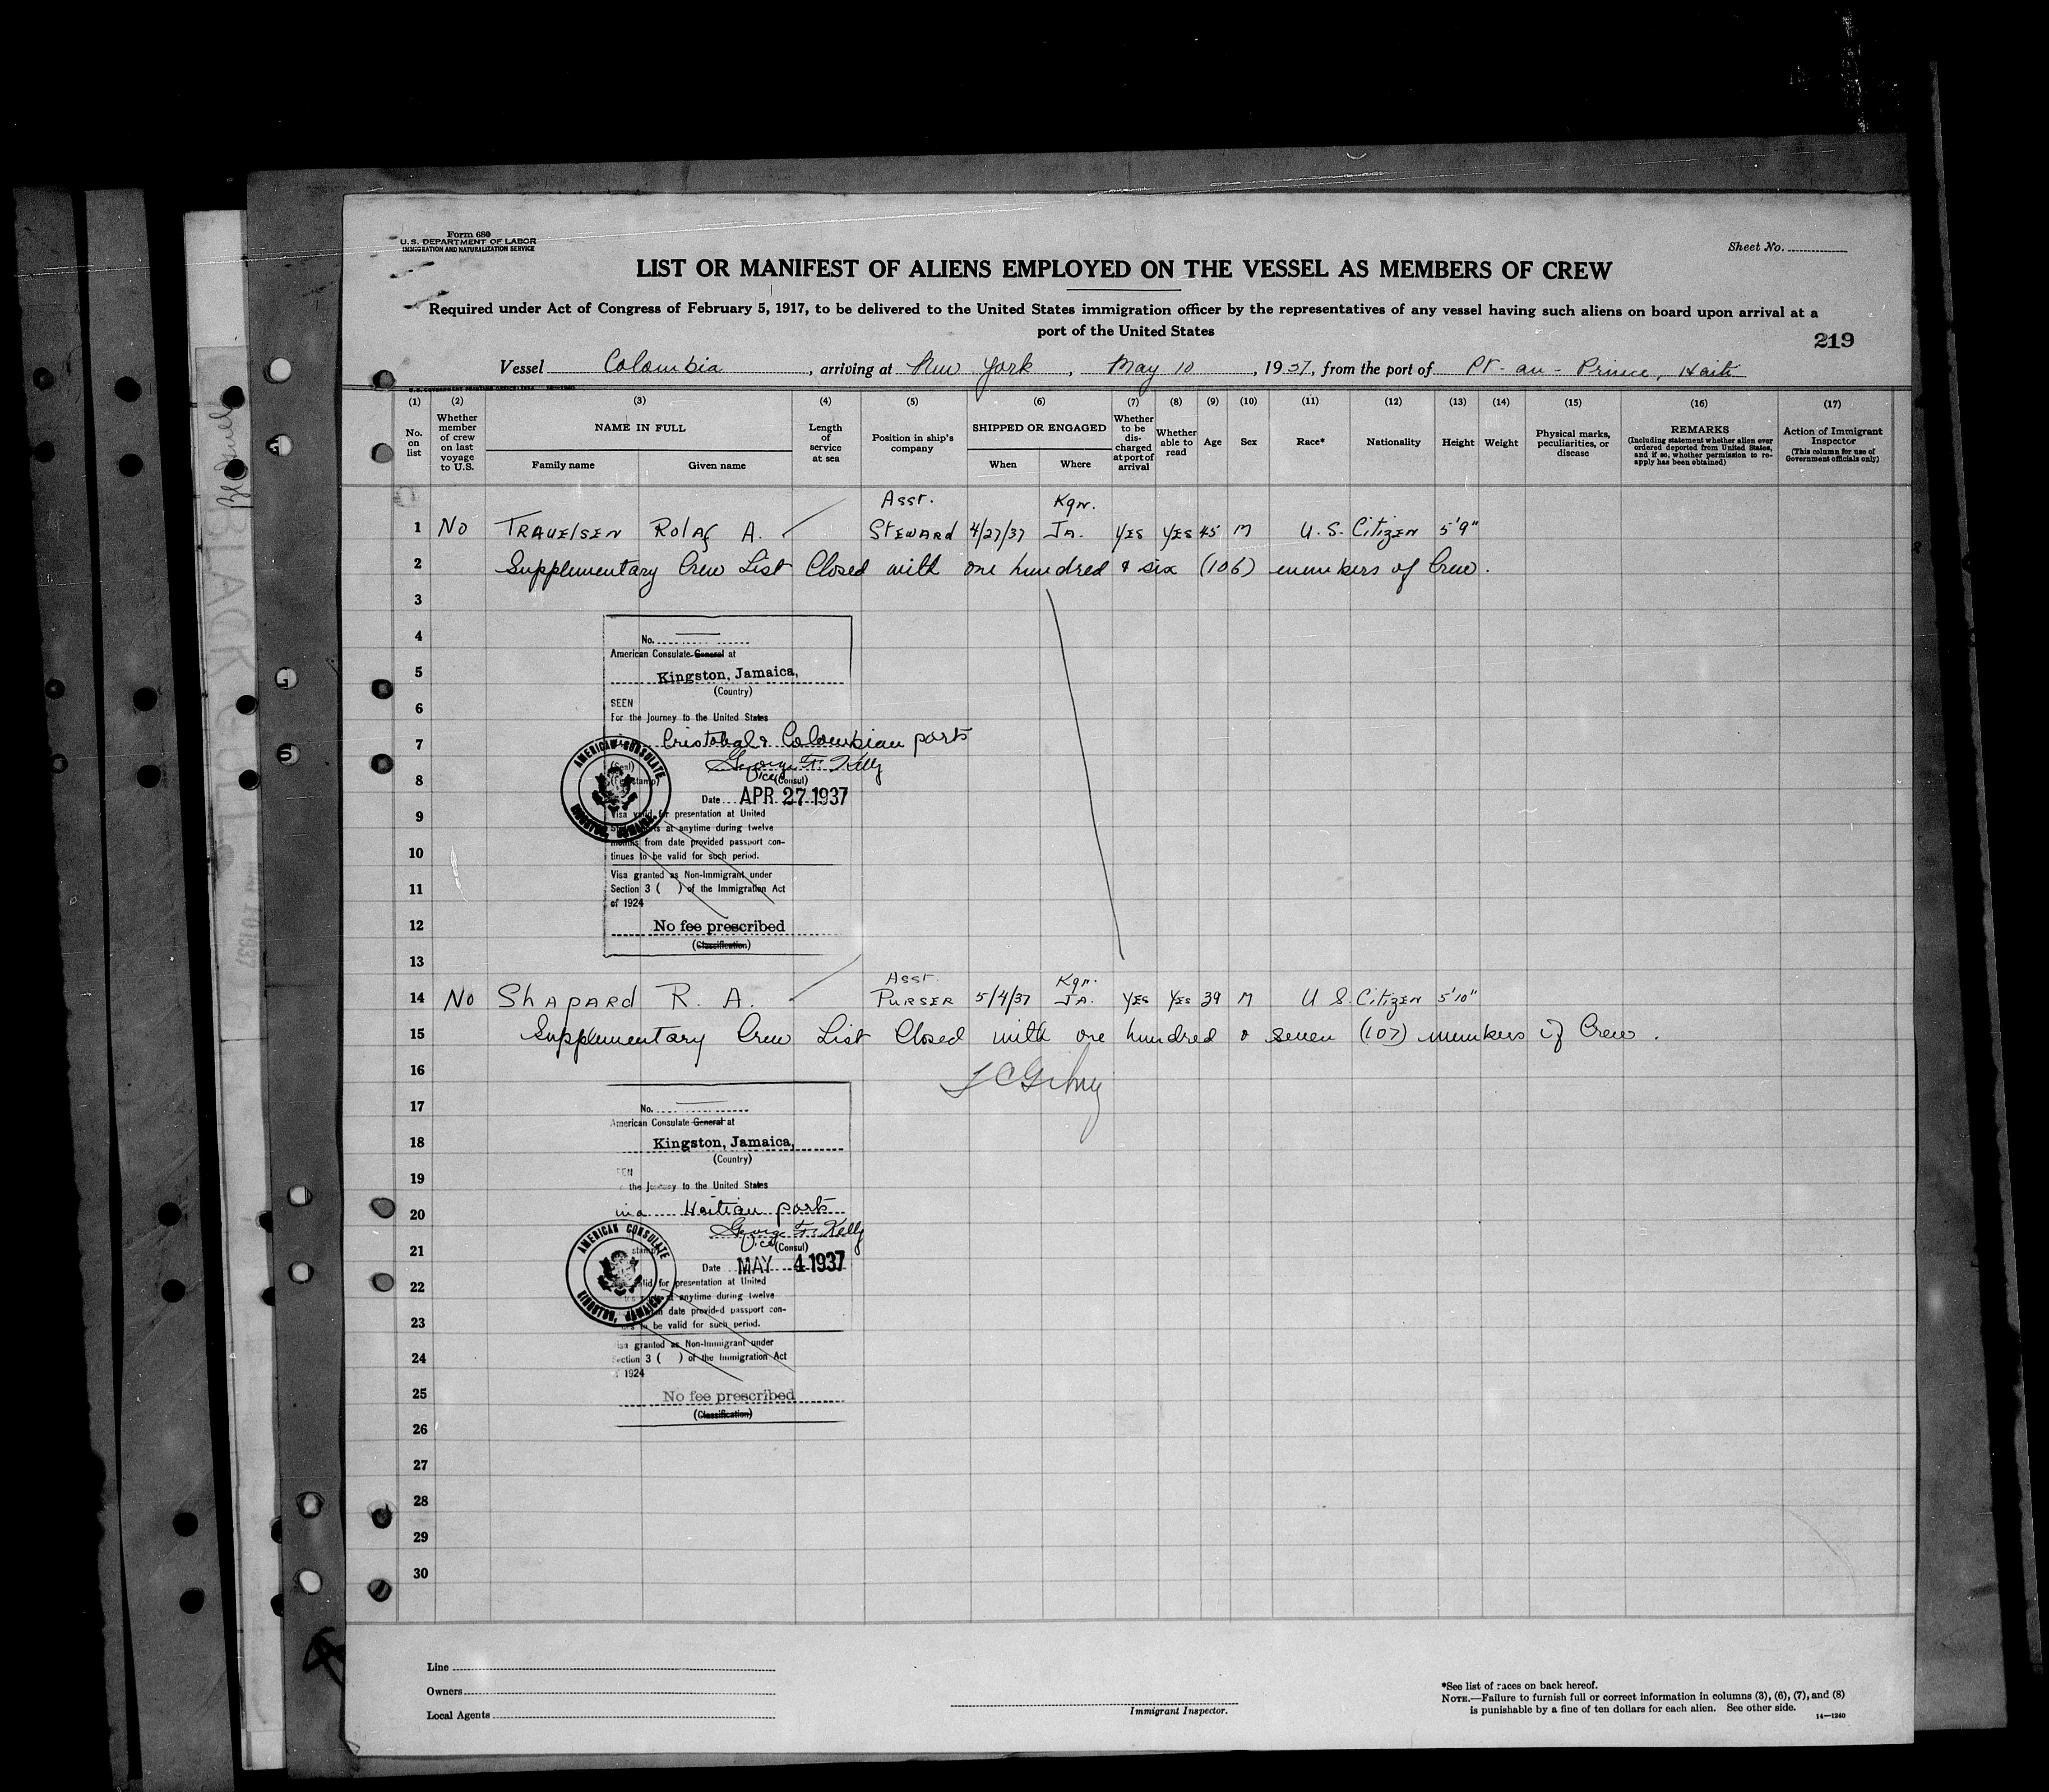 Form 680
U. S. DEPARTMENT OF LABOR
IMMIGRATION AND NATURALIZATION SERVICE
Sheet No.
LIST OR MANIFEST OF ALIENS EMPLOYED ON THE VESSEL AS MEMBERS OF CREW
Required under Act of Congress of February 5, 1917, to be delivered to the United States immigration officer by the representatives of any vessel having such aliens on board upon arrival at a
port of the United States
219
Vessel Colombia, arriving at New York, May 10, 1937, from the port of Pt-au-Prince, Haiti
(1) No. on list
(2) Whether member of crew on last voyage to U.S.
(3) NAME IN FULL Family name Given name
(4) Length of service at sea
(5) Position in ship's company
(6) SHIPPED OR ENGAGED When Where
(7) Whether to be discharged at port of arrival
(8) Whether able to read
(9) Age
(10) Sex
(11) Race*
(12) Nationality
(13) Height
(14) Weight
(15) Physical marks, peculiarities, or disease
(16) REMARKS (Including statement whether alien ever ordered deported from United States, and if so, whether permission to re-apply has been obtained)
(17) Action of Immigrant Inspector (This column for use of Government officials only)
Asst. Kgn.
1 No TRAUELSEN Rolaf A. STEWARD 4/27/37 JA. YES YES 45 M U. S. Citizen 5'9"
2 Supplementary Crew List Closed with one hundred & six (106) members of Crew.
3
4 No.
American Consulate General at
5 Kingston, Jamaica,
(Country)
6 SEEN
For the Journey to the United States
7 Cristobal & Colombian ports
George F. Kelly
8 Vice (Consul)
(Seal)
AMERICAN CONSULATE
KINGSTON, JAMAICA
Date APR 27 1937
9 Visa valid for presentation at United
States at anytime during twelve
10 months from date provided passport con-
tinues to be valid for such period.
11 Visa granted as Non-Immigrant under
Section 3 ( ) of the Immigration Act
of 1924
12 No fee prescribed
(Classification)
13
Asst. Kgn.
14 No Shapard R. A. PURSER 5/4/37 JA. YES YES 39 M U S. Citizen 5'10"
15 Supplementary Crew List Closed with one hundred & seven (107) members of Crew.
16
17 No.
American Consulate General at
18 Kingston, Jamaica,
(Country)
19
the Journey to the United States
20 via Haitian ports
George F. Kelly
21 Vice (Consul)
AMERICAN CONSULATE
KINGSTON, JAMAICA
stamp
Date MAY 4 1937
22 valid for presentation at United
at anytime during twelve
23 date provided passport con-
to be valid for such period.
24 granted as Non-Immigrant under
Section 3 ( ) of the Immigration Act
1924
25 No fee prescribed
(Classification)
26
27
28
29
30
Line
Owners
Local Agents
Immigrant Inspector.
*See list of races on back hereof.
NOTE.—Failure to furnish full or correct information in columns (3), (6), (7), and (8)
is punishable by a fine of ten dollars for each alien. See other side.
14—1240